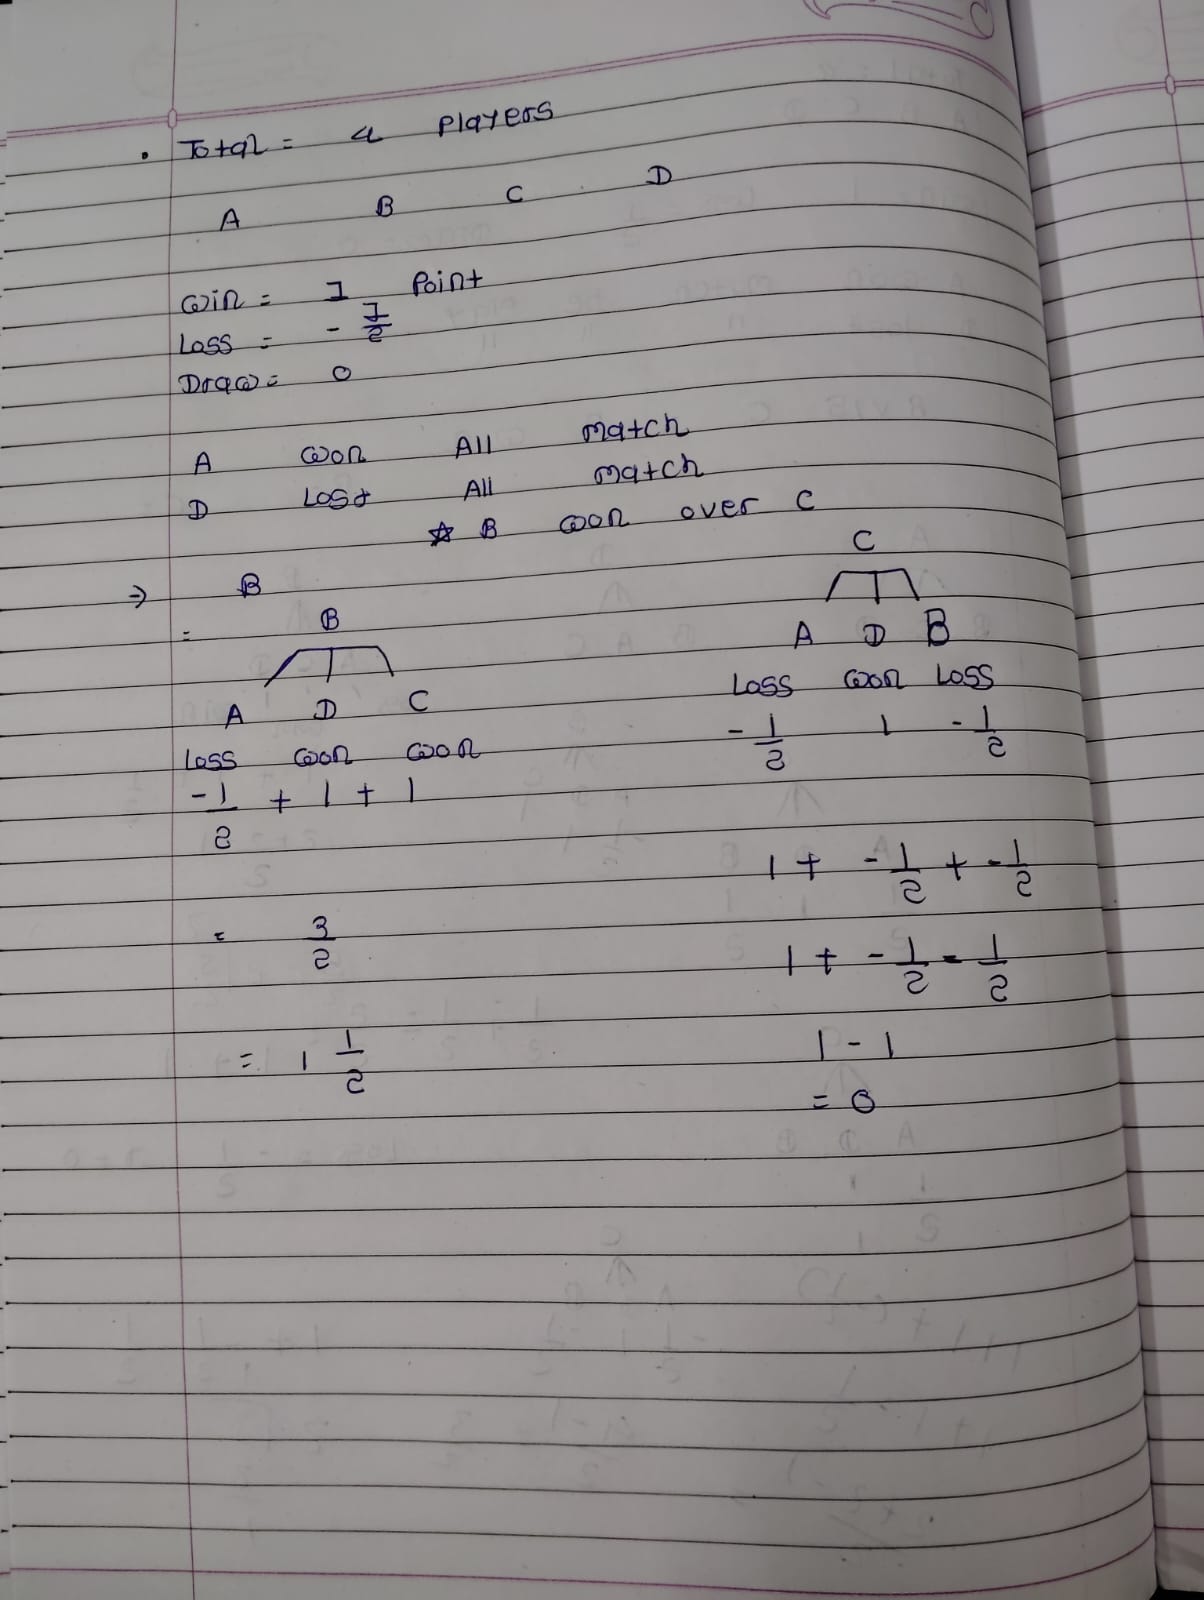 . Total = 4 Players
A B C D
Win = 1 Point
Loss = - 1/2
Draw = 0
A won All match
D Lost All match
☆ B won over C
→ B
= B
A D C
Loss won won
-1/2 + 1 + 1
= 3/2
= 1 1/2
C
A D B
Loss won Loss
- 1/2 1 - 1/2
1 + - 1/2 + - 1/2
1 + - 1/2 - 1/2
1 - 1
= 0